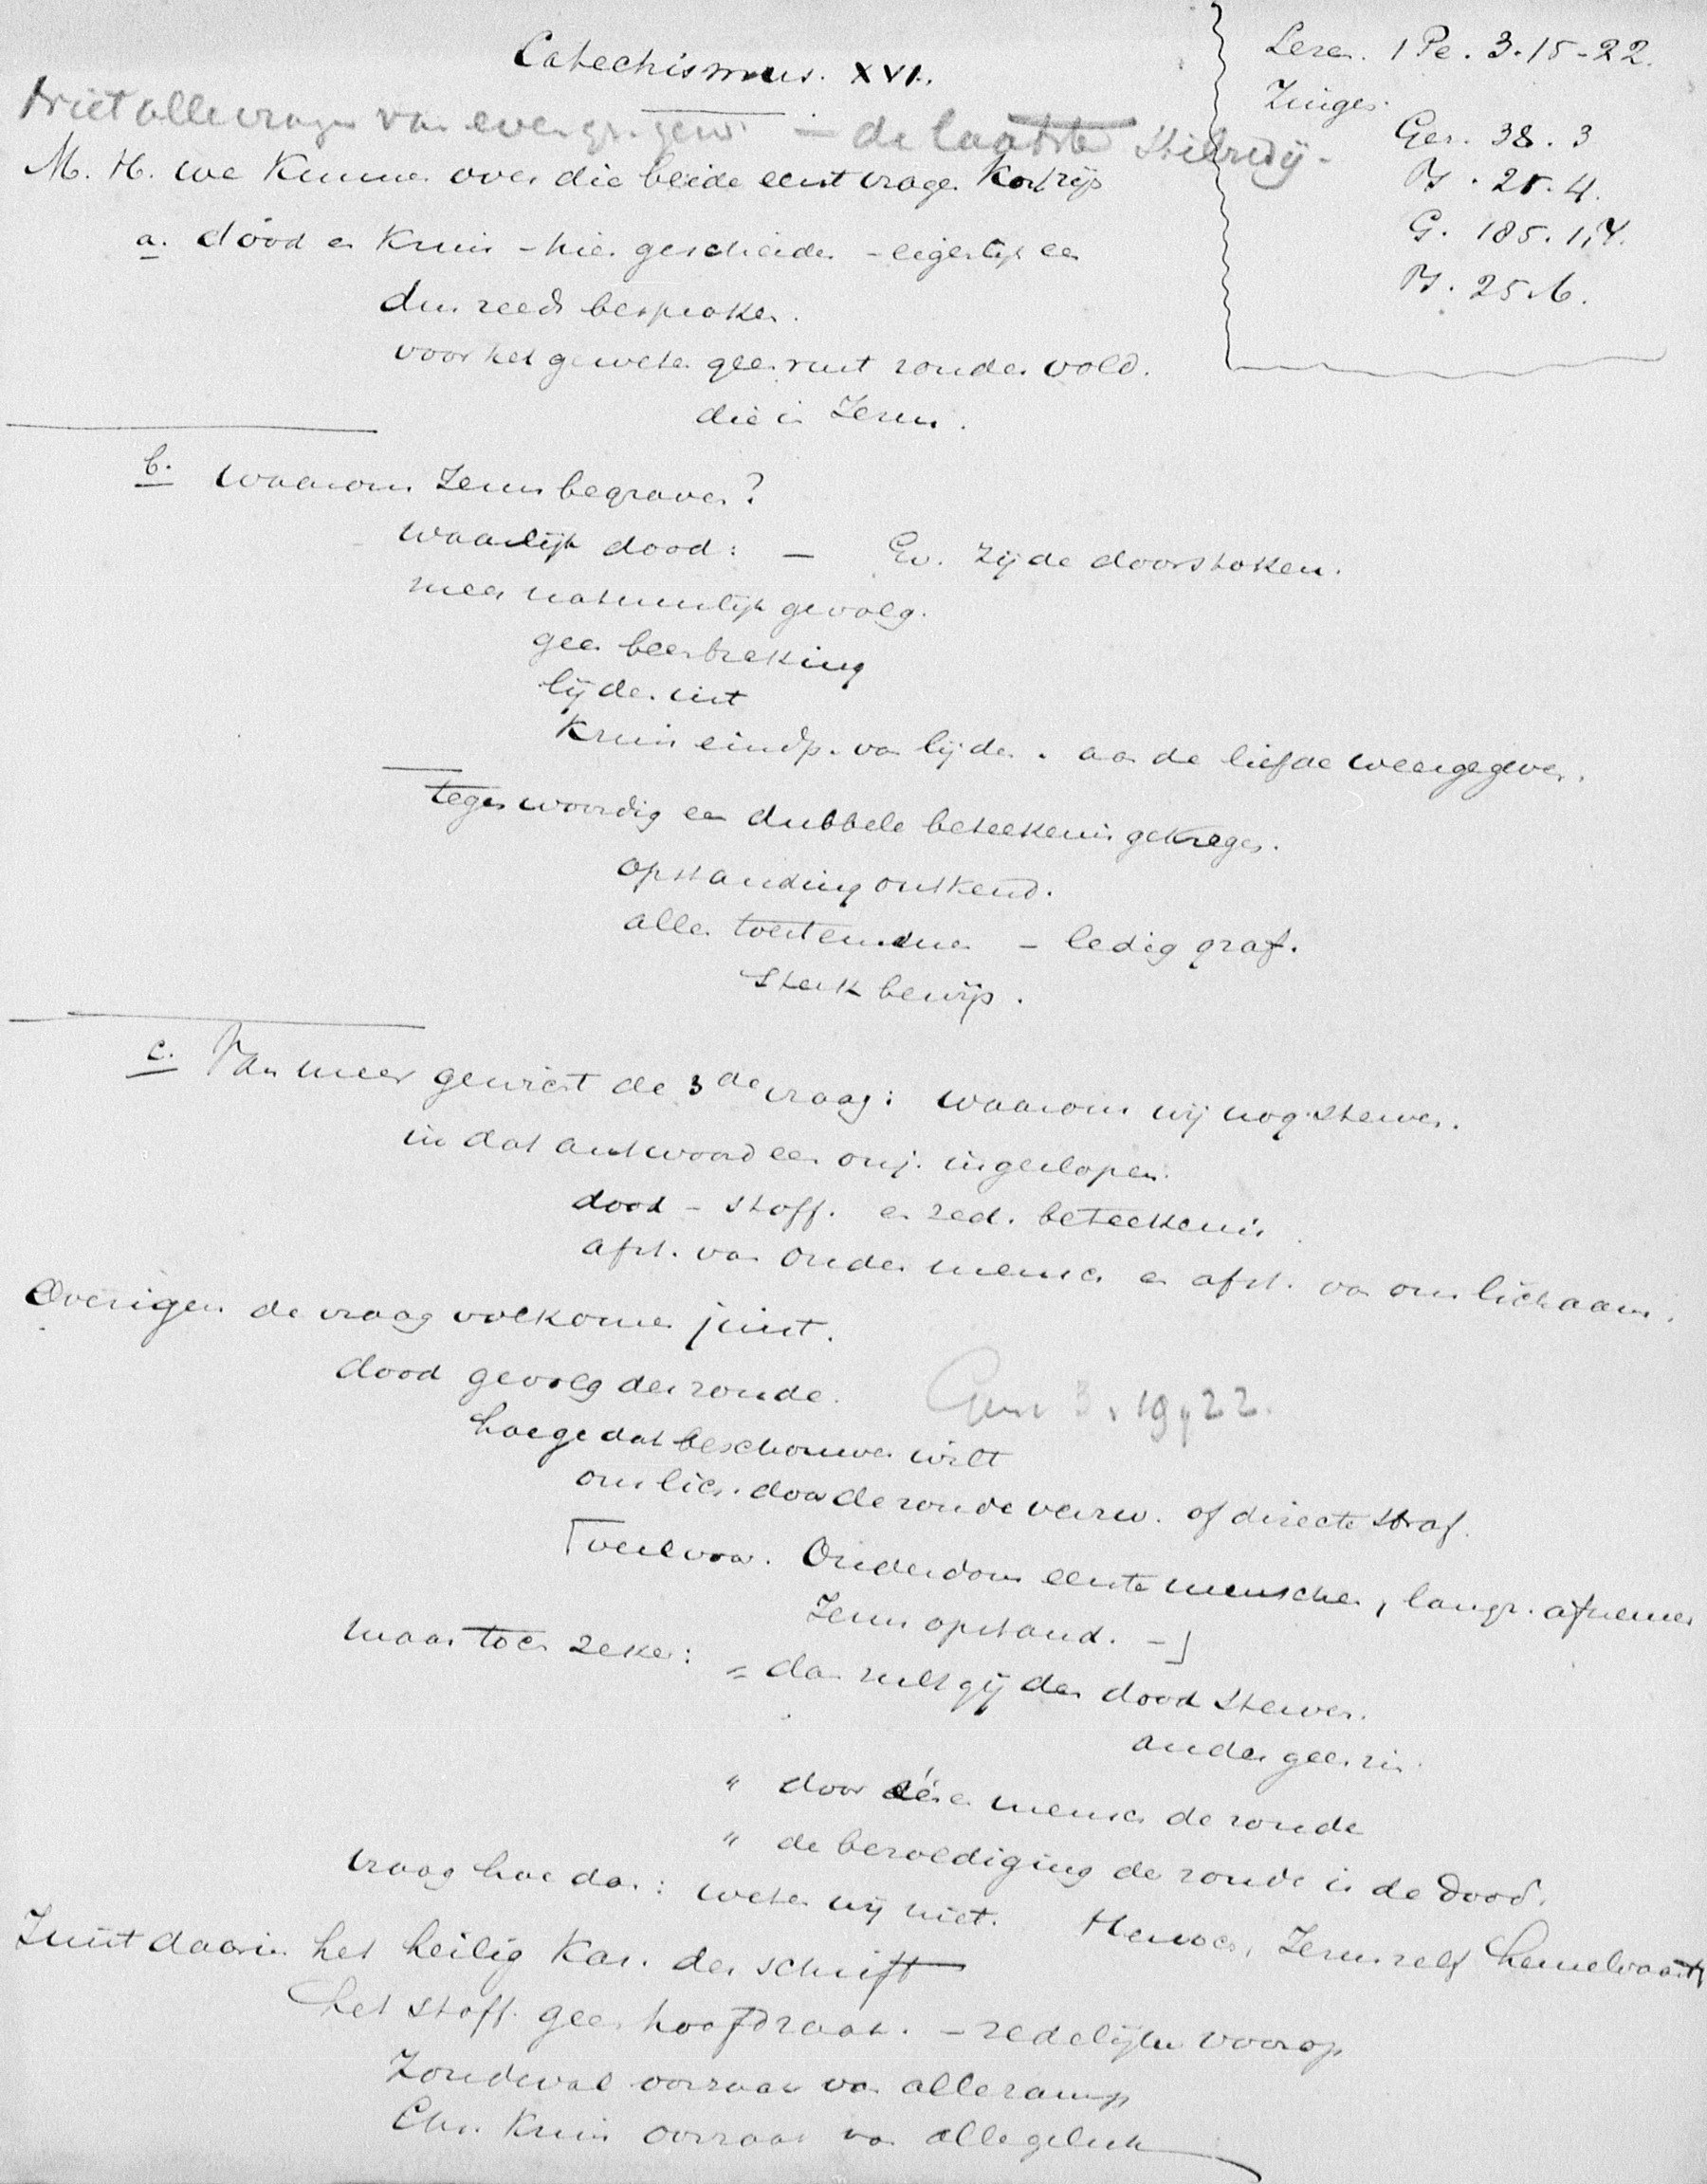 Catechismus. XVI.
Lezen. 1 Pe. 3.15-22.
Zingen.
Gez. 38. 3
Ps. 25. 4.
G. 185. 1,4.
Ps. 25.6.
Niet alle vragen van even gr. gew. - de laatste
M. H. we kunnen over die beide eerst vragen kort zijn
a. dood en kruis - hier gescheiden - eigenlijk een
dus reeds besproken.
voor het geweten geen rust zonder vold.
die in Jezus.
b. waarom Jezus begraven?
waarlijk dood: - Ev. zijde doorstoken.
meer natuurlijk gevolg.
geen beenbreking
lijden uit
Kruis eindp. van lijden. aan de liefde weergegeven.
tegenwoordig een dubbele beteekenis gekregen.
opstanding ontkend.
allen toestemmen - ledig graf.
sterk bewijs.
c. Van meer gewicht de 3de vraag: waarom wij nog sterven.
in dat antwoord een onj. ingeslopen.
dood - stoff. en zed. beteekenis
afst. van ouden mensch en afst. van ons lichaam.
Overigens de vraag volkomen juist.
dood gevolg der zonde. Gen 3, 19, 22.
hoe ge dat beschouwen wilt
ons lich. door de zonde verzw. of directe straf.
[veel voor. Ouderdom eerste menschen, langz. afnemen
Jezus opstand. -]
maar toch zeker: = dan zult gij den dood sterven.
anders geen zin.
" door één mensch de zonde
" de bezoldiging der zonde is de dood.
vraag hoe dan: weten wij niet. Henoch, Jezus zelf hemelvaart
Juist daarin het heilig kar. der schrift
het stoff. geen hoofdzaak. - zedelijke voorop
Zondeval oorzaak van alle ramp
Chr. Kruis oorzaak van alle geluk